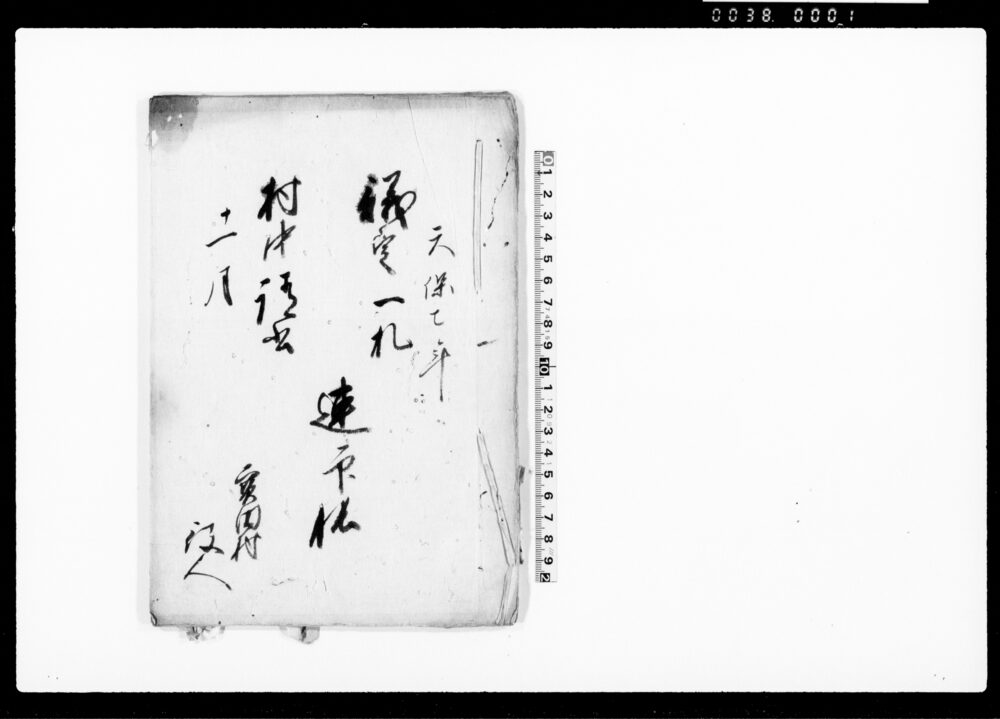 0038 0001
天保七年
議定一札
連印帳
村中請書
十一月
田村
役人
0 1 2 3 4 5 6 7 8 9 10 1 2 3 4 5 6 7 8 9